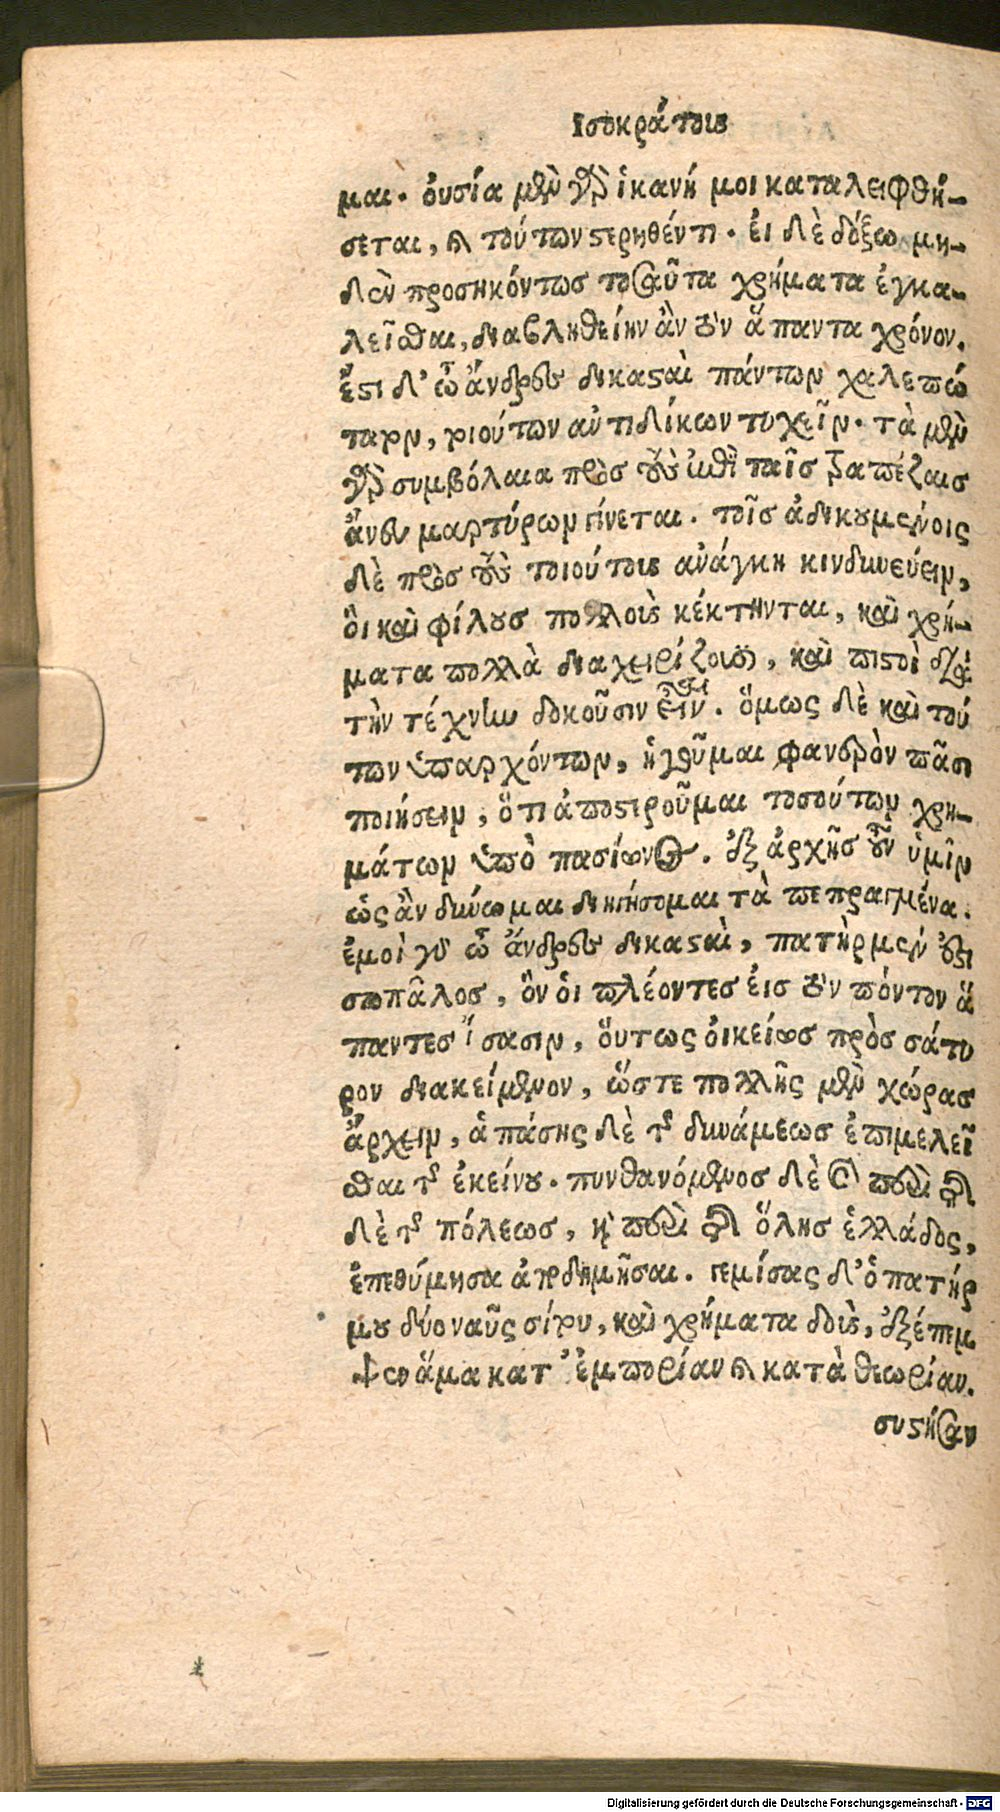 Ισοκράτους
μαι. οὐσία μὲν γὰρ ἱκανή μοι καταλειφθή-
σεται, καὶ τούτων στερηθέντι. εἰ δὲ δόξω μη-
δὲν προσηκόντως τοσαῦτα χρήματα ἐγκα-
λεῖσθαι, διαβληθείην ἂν τὸν ἅπαντα χρόνον.
ἔστι δ' ὦ ἄνδρες δικασταὶ πάντων χαλεπώ
ταρν, ριούτων αὐτιδίκων τυχεῖν. τὰ μὲν
γὰρ συμβόλαια πρὸς τοὺς ἐπὶ ταῖς τραπέζαις
ἄνευ μαρτύρων γίνεται. τοῖς ἀδικουμένοις
δὲ πρὸς τοὺς τοιούτους ἀνάγκη κινδυνεύειν,
οἳ καὶ φίλους πολλοὺς κέκτηνται, καὶ χρή-
ματα πολλὰ διαχειρίζουσι, καὶ πιστοὶ διὰ
τὴν τέχνην δοκοῦσιν εἶναι. ὅμως δὲ καὶ τού
των ὑπαρχόντων, ἡγοῦμαι φανερὸν πᾶσι
ποιήσειν, ὅτι ἀποστεροῦμαι τοσούτων χρη-
μάτων ὑπὸ πασίωνος. ἐξ ἀρχῆς οὖν ὑμῖν
ὡς ἂν δύνωμαι διηγήσομαι τὰ πεπραγμένα.
ἐμοὶ γὰρ ὦ ἄνδρες δικασταὶ, πατὴρ μέν ἐστι
σωπᾶλος, ὃν οἱ πλέοντες εἰς τὸν πόντον ἅ
παντες ἴσασιν, οὕτως οἰκείως πρὸς σάτυ
ρον διακείμενον, ὥστε πολλῆς μὲν χώρας
ἄρχειν, ἁπάσης δὲ τῆς δυνάμεως ἐπιμελεῖ
σθαι τῆς ἐκείνου. πυνθανόμενος δὲ καὶ περὶ τῆς
δὲ τῆς πόλεως, καὶ περὶ τῆς ὅλης ἑλλάδος,
ἐπεθύμησα ἀποδημῆσαι. γεμίσας δ' ὁ πατήρ
μου δύο ναῦς σίτου, καὶ χρήματα δοὺς, ἐξέπεμ
ψεν ἅμα κατ' ἐμπορίαν καὶ κατὰ θεωρίαν.
συστήσαν
Digitalisierung gefördert durch die Deutsche Forschungsgemeinschaft - DFG